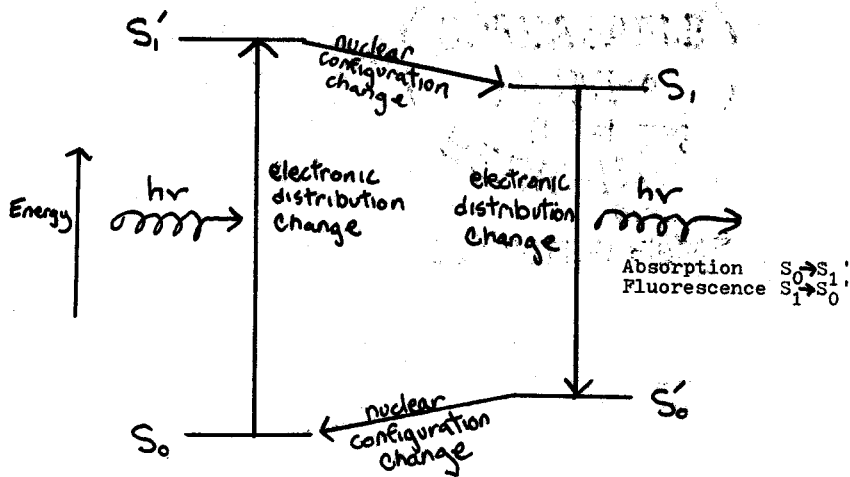 S₁'
nuclear
configuration
change
S₁
Energy
hν
electronic
distribution
change
electronic
distribution
change
hν
Absorption S₀→S₁'
Fluorescence S₁→S₀'
S₀
nuclear
configuration
change
S₀'